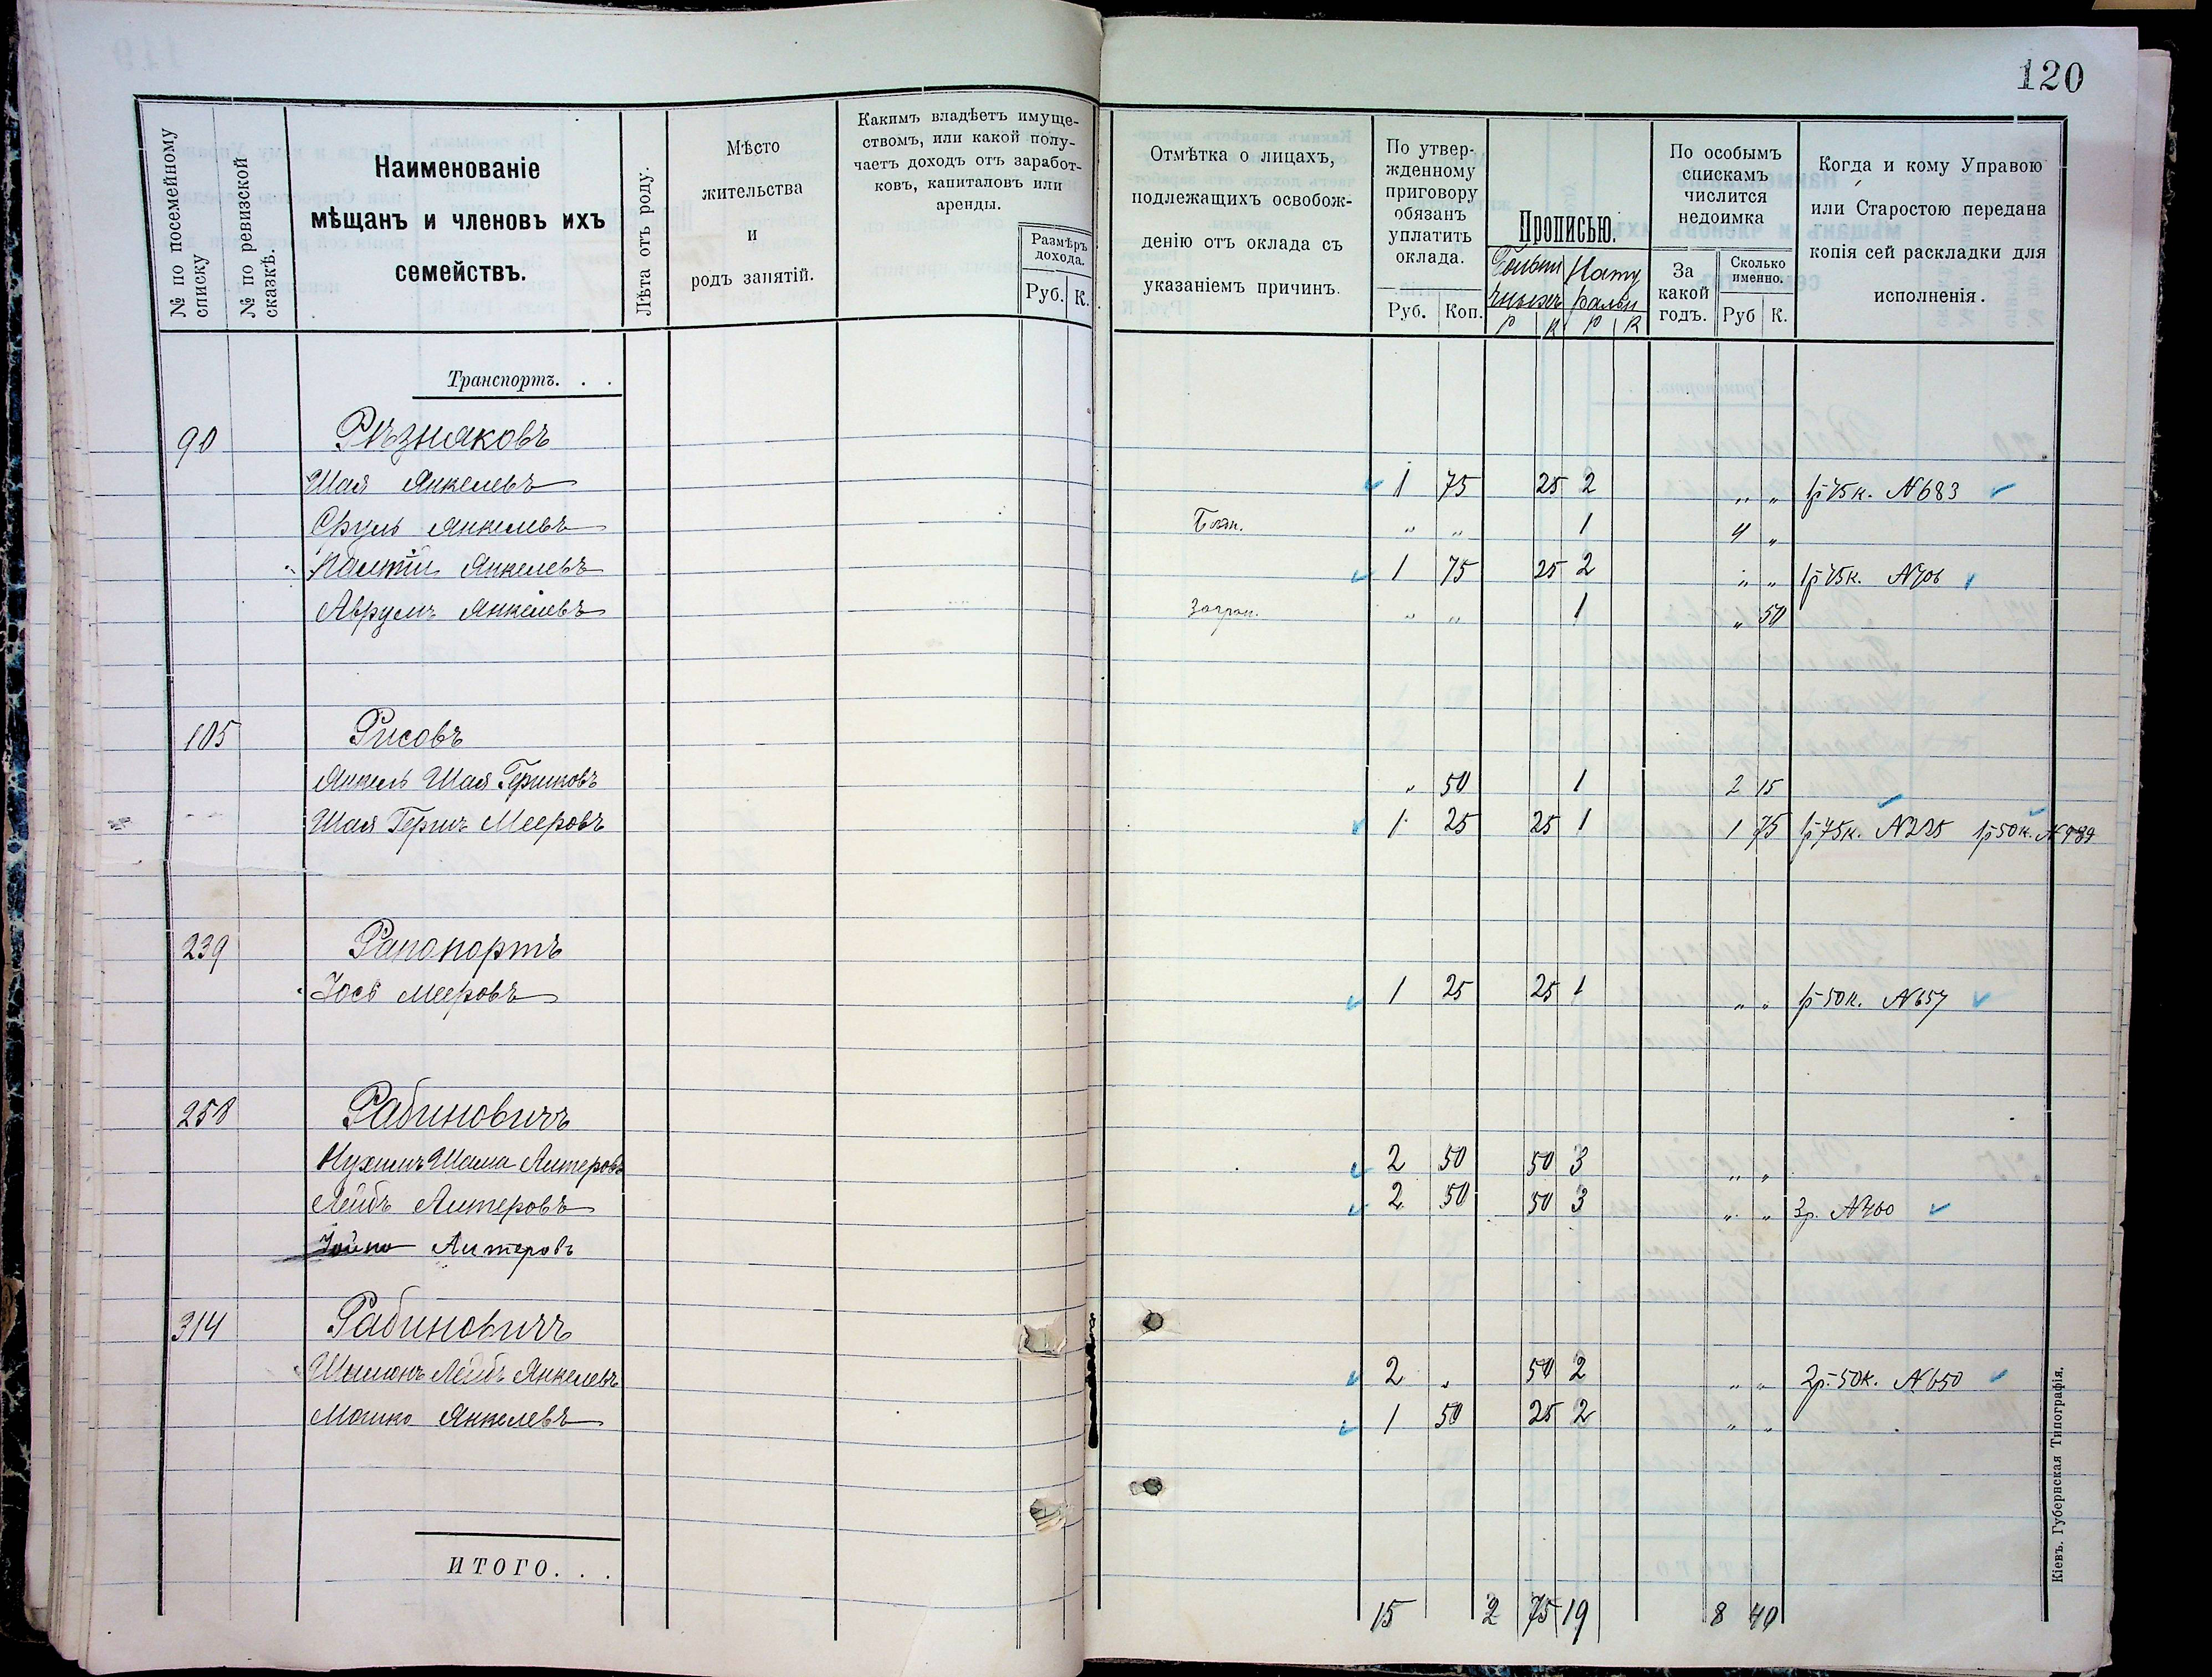 120
№ по посемейному списку
№ по ревизской сказкѣ.
Наименованіе мѣщанъ и членовъ ихъ семействъ.
Лѣта отъ роду.
Мѣсто жительства и родъ занятій.
Какимъ владѣетъ имуществомъ, или какой получаетъ доходъ отъ заработковъ, капиталовъ или аренды.
Размѣръ дохода.
Руб. К.
Отмѣтка о лицахъ, подлежащихъ освобожденію отъ оклада съ указаніемъ причинъ.
По утвержденному приговору обязанъ уплатить оклада.
Руб. Коп.
Прописью.
Р К Р К
По особымъ спискамъ числится недоимка
За какой годъ.
Сколько именно.
Руб К.
Когда и кому Управою или Старостою передана копія сей раскладки для исполненія.
Транспортъ. . .
90 Рѣзняковъ
Шая Янкелевъ 1 75 25 2 „ „ 1р 75к. №683
Сруль Янкелевъ „ „ 1 4 „
Янкелевъ 1 75 25 2 „ „ 1р 75к. №706
Аврумъ Янкелевъ Загран. „ „ 1 „ 50
105 Рисовъ
Янкель Шая Гершковъ „ 50 1 2 15
Шая Гершъ Мееровъ 1 25 25 1 1 75 1р 75к. №225 1р 50к. №989
239 Рапопортъ
Іось Мееровъ 1 25 25 1 „ „ 1р 50к. №657
258 Рабиновичъ
Нухимъ Шама Алтеровъ 2 50 50 3 „ „
Лейбъ Алтеровъ 2 50 50 3 „ „ 3р. №700
Алтеровъ
314 Рабиновичъ
Шимонъ Лейбъ Янкелевъ 2 „ 50 2 „ „ 2р. 50к. №650
Мошко Янкелевъ 1 50 25 2 „ „
ИТОГО. . .
15 2 75 19 8 40
Кіевъ. Губернская Типографія.